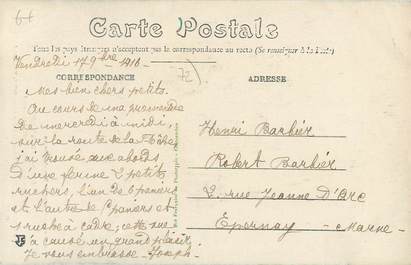 Carte Postale
Tous les pays étrangers n'acceptent pas la correspondance au recto (Se renseigner à la Poste)
Vendredi 17 9bre 1916
72
CORRESPONDANCE
ADRESSE
Mes bien chers petits.
Au cours de ma promenade
de mercredi à midi,
sur la route de la
j'ai trouvé aux abords
d'une ferme 2 petits
ruchers, l'un de 6 paniers
et l'autre de paniers et
1 ruche à cadre; cette vue
m'a causé un grand plaisir.
Je vous embrasse. Joseph.
Henri Barbier
Robert Barbier
2, rue Jeanne D'Arc
Épernay - Marne -